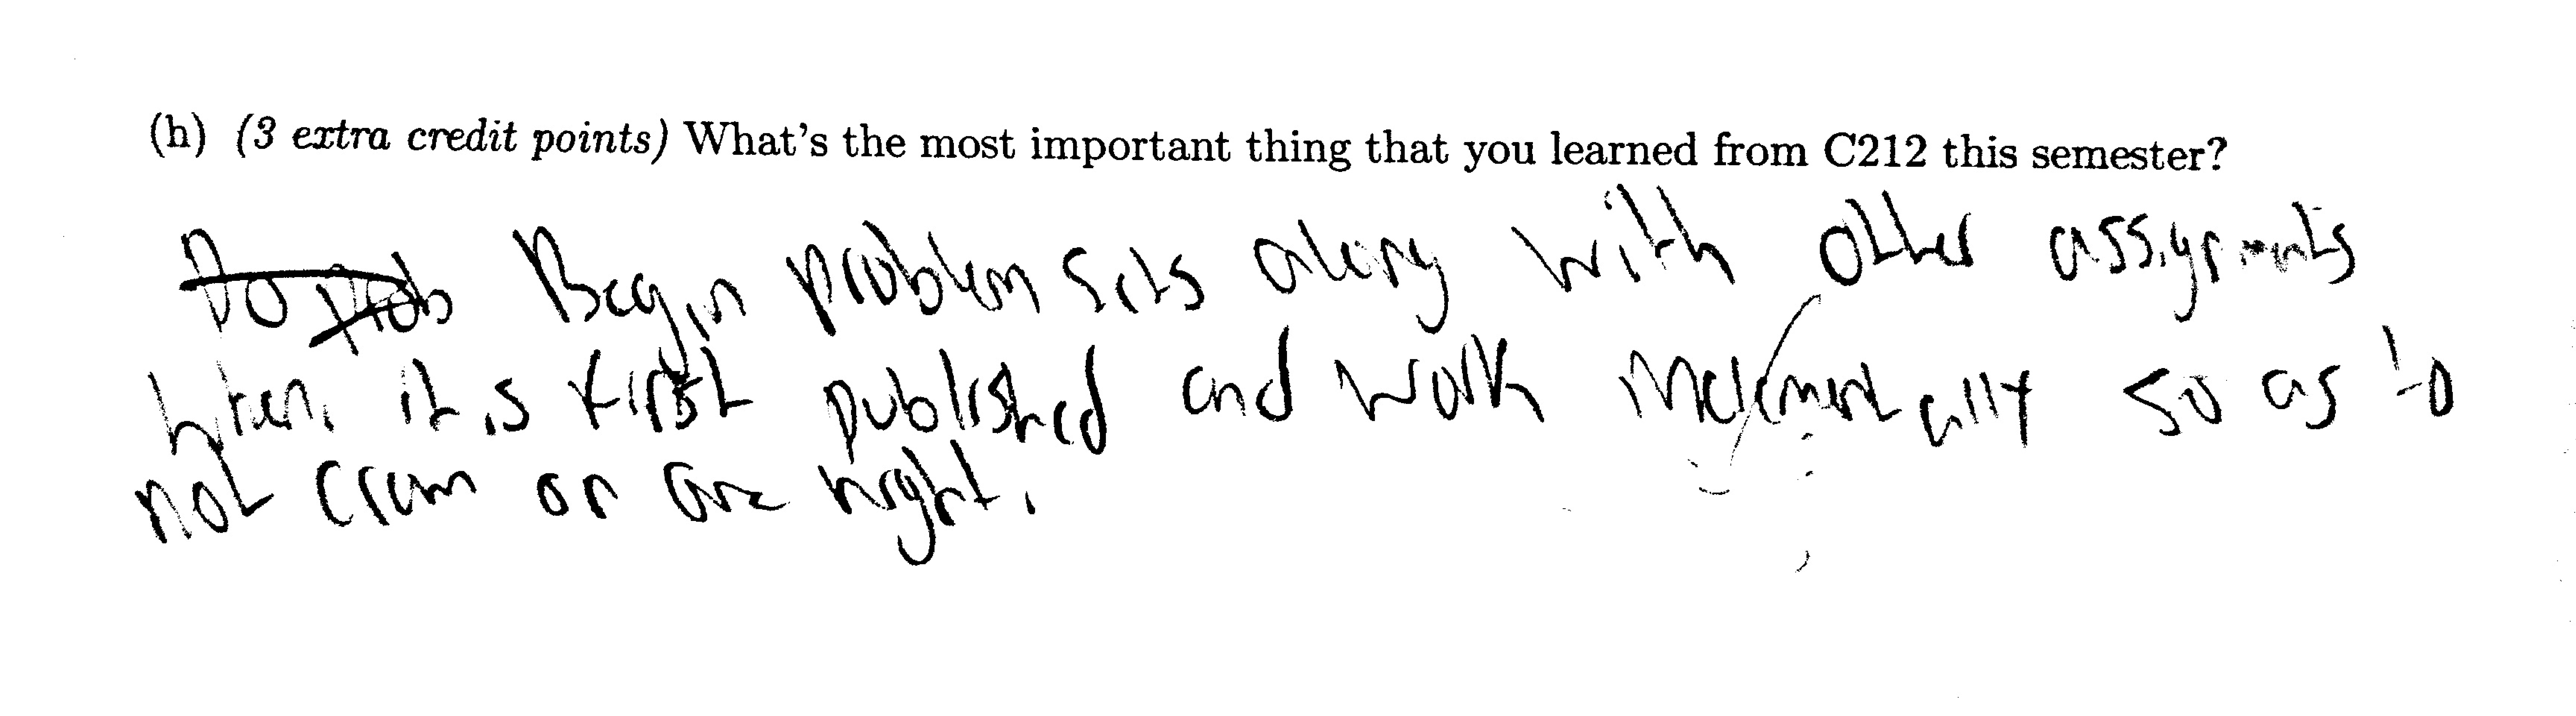 (h) (3 extra credit points) What's the most important thing that you learned from C212 this semester?
Do prob Begin problem sets along with other assignments
when it is first published and work incrementally so as to
not cram on one night.